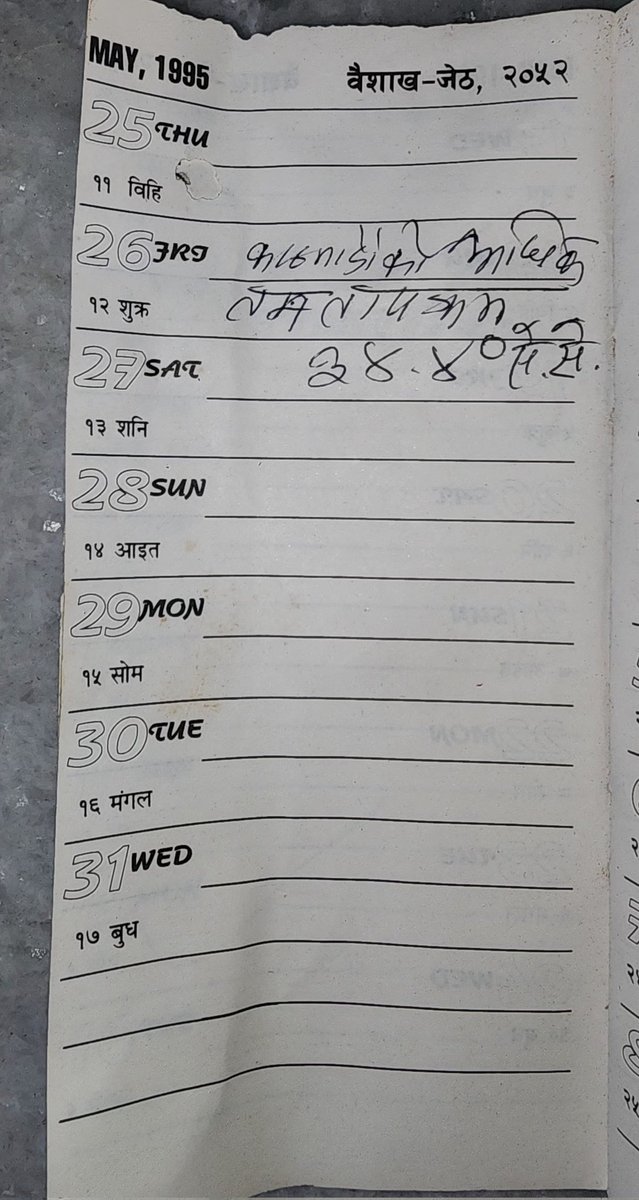 MAY, 1995
वैशाख-जेठ, २०५२
25 THU
११ विहि
26 FRI काठमाडौंको अधिक
१२ शुक्र तम तापक्रम
27 SAT ३४.४° से.से.
१३ शनि
28 SUN
१४ आइत
29 MON
१५ सोम
30 TUE
१६ मंगल
31 WED
१७ बुध